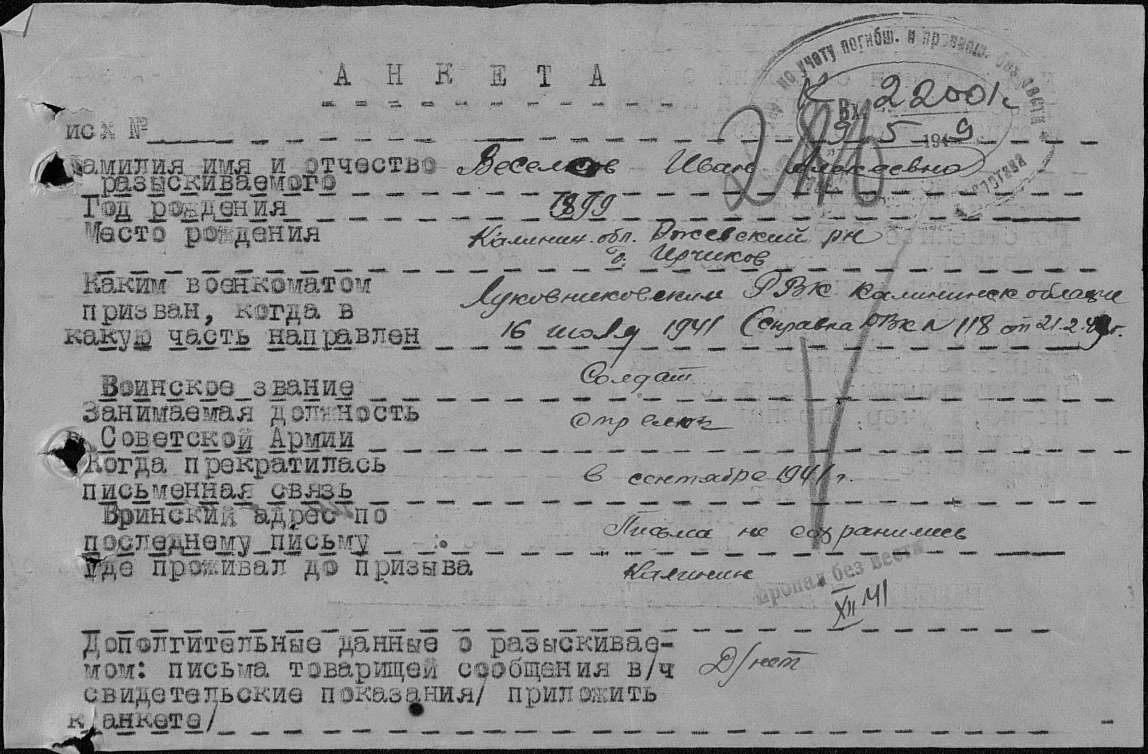 по учету погибш. и пропавш. без вести
А Н К Е Т А
Вх 22001с
9 5 1949
246
исх №
Фамилия имя и отчество Веселов Иван Алексеевич
разыскиваемого
Год рождения 1899
Место рождения Калинин. обл. Ржевский рн
д. Ирчиков
Каким военкоматом Луковниковским РВК Калининск области
призван, когда в
какую часть направлен 16 июля 1941 (справка РВК № 118 от 21.2.49г.
Воинское звание Солдат
Занимаемая должность стрелок
в Советской Армии
Когда прекратилась в сентябре 1941 г.
письменная связь
Вринский адрес по Письма не сохранились
последнему письму
Где проживал до призыва Калинин
Пропал без вести
XII 41
Дополгительные данные о разыскивае-
мом: письма товарищей сообщения в/ч Д/нет
свидетельские показания/ приложить
к анкете/